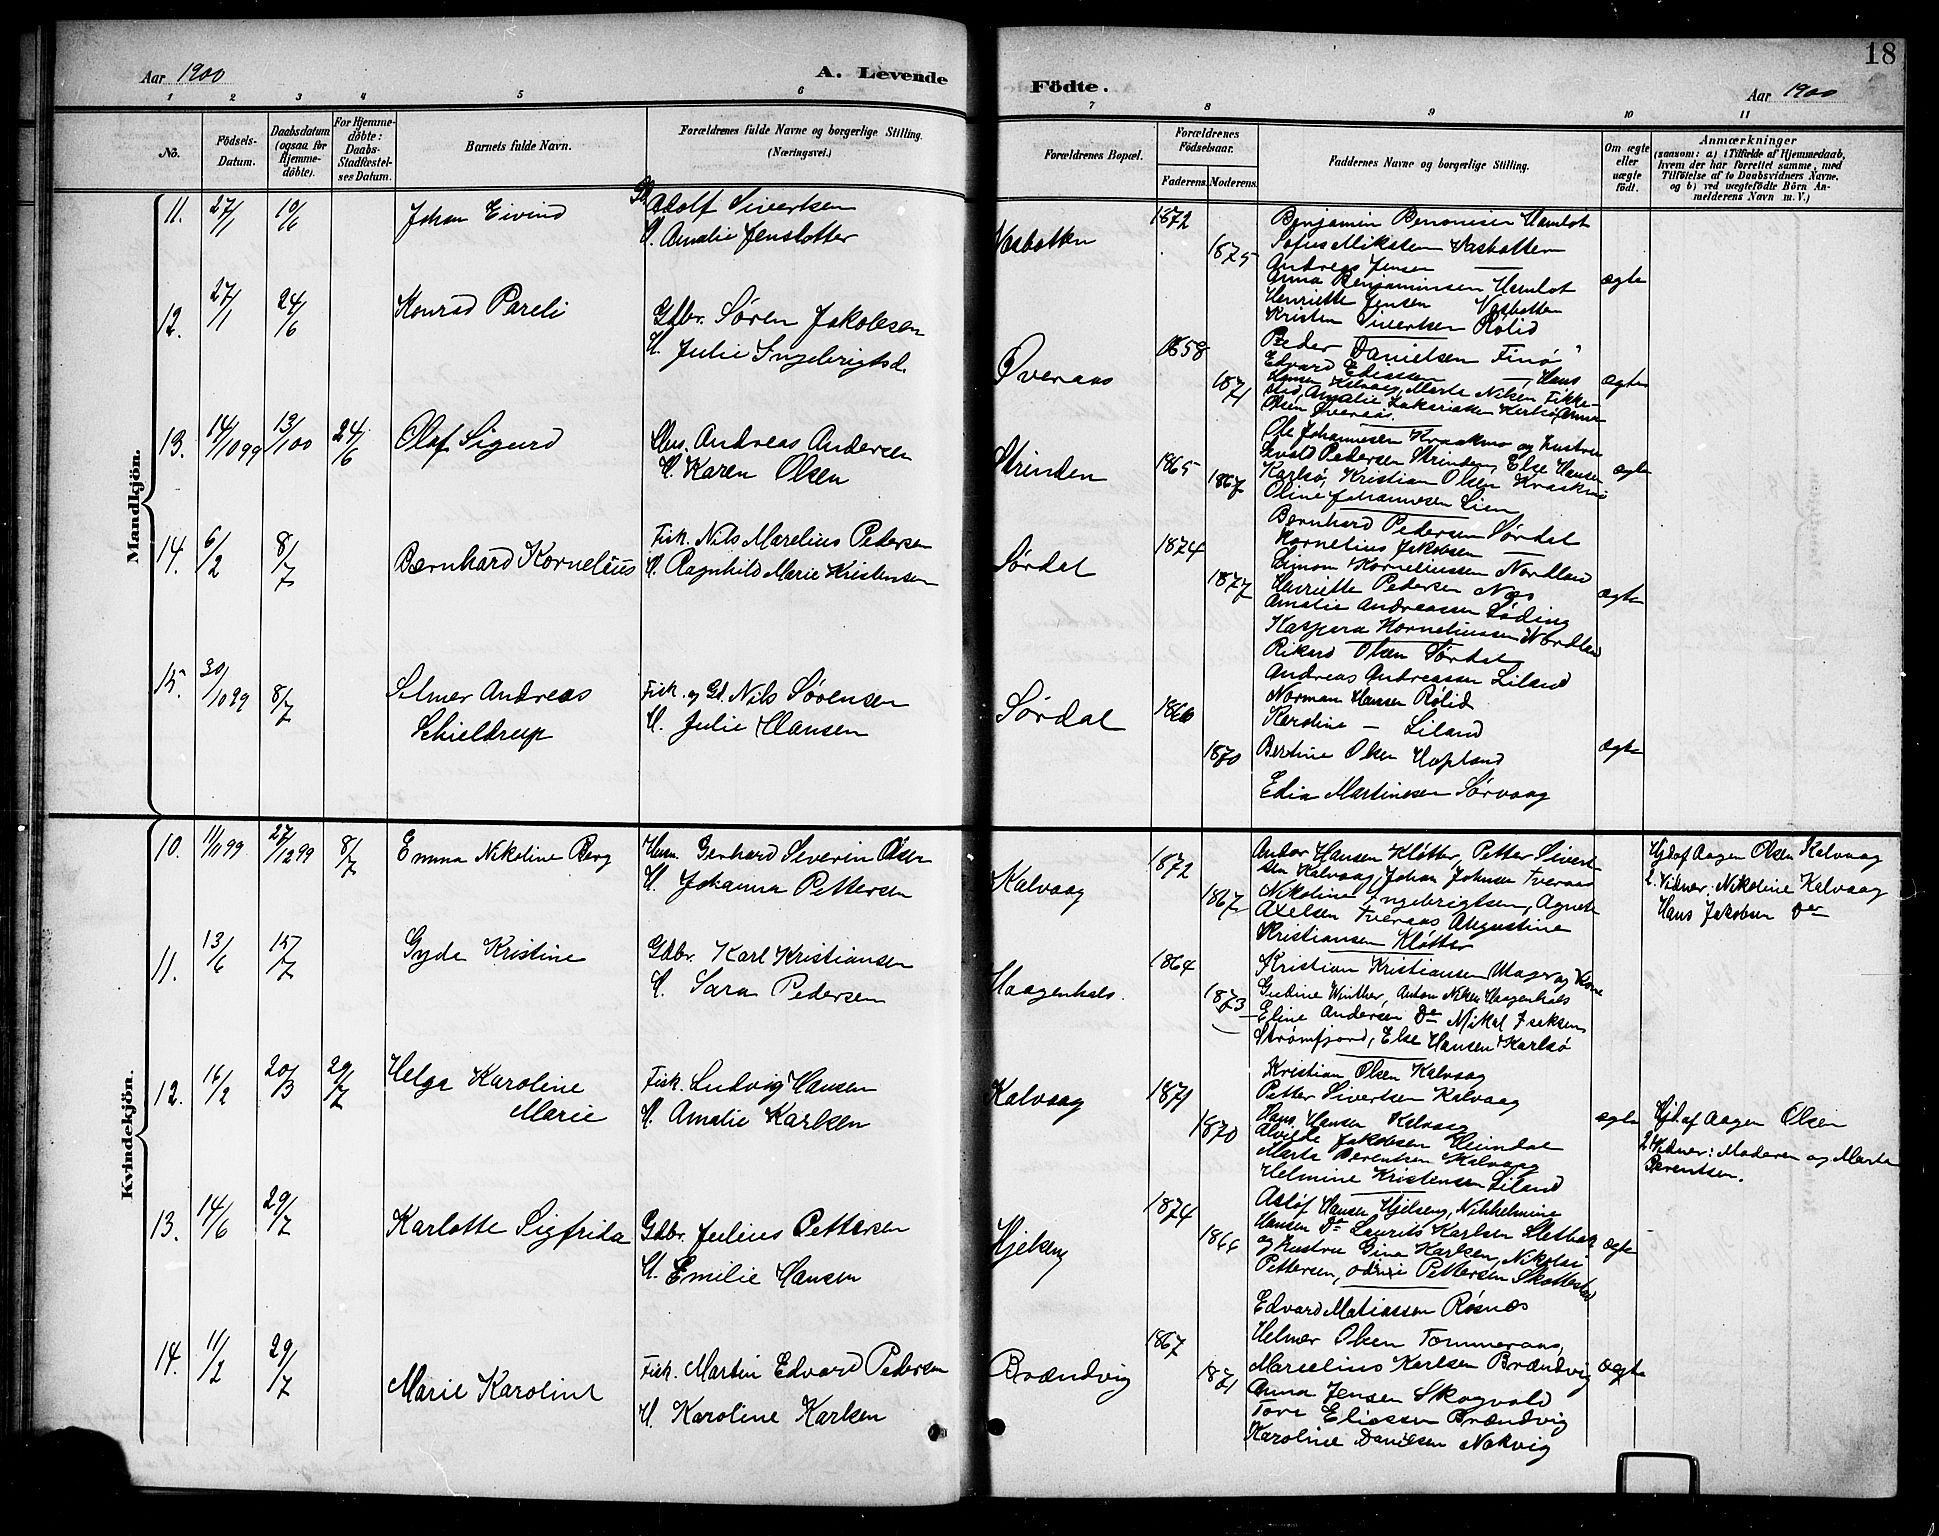 18
Aar 1900
A. Levende
Födte.
Aar 1900
1 2 3 4 5 6 7 8 9 10 11
No.
Födsels-Datum.
Daabsdatum (ogsaa for Hjemmedöbte).
For Hjemmedöbte: Daabs-Stadfæstelses Datum.
Barnets fulde Navn.
Forældrenes fulde Navne og borgerlige Stilling.
(Næringsvei.)
Forældrenes Bopæl.
Forældrenes Födselsaar.
Faderens. Moderens.
Faddernes Navne og borgerlige Stilling.
Om ægte eller uægte födt.
Anmærkninger
(saasom: a) i Tilfælde af Hjemmedaab, hvem der har forrettet samme, med Tilföielse af to Daabsvidners Navne, og b) ved uægtefödte Börn Anmelderens Navn m. V.)
Mandkjön.
11. 27/1 19/6 Johan Eivind
Adolf Sivertsen
H. Amalie Jenslotter
Vasbotten 1872 1875
Benjamin Benonisen Hamlot
Sofus Miksten Vasbotten
Andreas Jensen —
Anna Benjaminsen Hamlot
Henriette Jensen Vasbotten
Kristen Sivertsen Rölid
ægte
12. 27/1 24/6 Konrad Pareli
Gdbr. Søren Jakobsen
H. Julie Ingebrigtsd.
Øveraas 1858 1871
Peder Danielsen Finø
Edvard Ediassen — Hans
Hansen Kalvaag, Marte Nilsen Fikke-
stad, Amalie Zakariasen Karlsø, Anna
Olsen Øveraas.
ægte
13. 14/10 99 13/1 00 24/6 Olaf Sigurd
Hus. Andreas Andersen
H. Karen Olsen
Strinden 1865 1867
Ole Johannesen Kraakmo og hustru
Evald Pedersen Strinden, Else Hansen
Karlsø, Kristian Olsen Kraakmo
Oline Johannesen Lien
ægte
14. 6/2 8/7 Bernhard Kornelius
Fisk. Nils Marelius Pedersen
H. Ragnhild Marie Kristensen
Sørdal 1874 1877
Bernhard Pedersen Sørdal
Kornelius Jakobsen —
Simon Korneliussen Nordland
Henriette Pedersen Næs
Amalie Andreassen Løding
Kaspara Korneliussen Nordland
ægte
15. 30/10 99 8/7 Selmer Andreas
Schieldrup
Fisk. og Gd. Nils Sørensen
H. Julie Hansen
Sørdal 1866 1870
Rikard Olsen Sørdal
Andreas Andreassen Liland
Norman Hansen Rölid
Karoline — Liland
Bertine Olsen Hopland
Edia Martinsen Sørvaag
ægte
Kvindekjön.
10. 11/11 99 27/12 99 8/7 Emma Nikoline Berg
Husm. Gerhard Severin Olsen
H. Johanna Pettersen
Kalvaag 1872 1867
Andor Hansen Kløtter, Petter Sivert-
sen Kalvaag, Johan Johnsen Tveraas
Nikoline Ingebrigtsen, Agnete
Axelsen Tveraas, Augustine
Kristiansen Kløtter
Hjd. af Aagen Olsen Kalvaag
2. Vidner: Nikoline Kalvaag
Hans Jakobsen Do
11. 13/6 15/7 Gyda Kristine
Gdbr. Karl Kristiansen
H. Sara Pedersen
Haagenhals. 1864 1873
Kristian Kristiansen Mager og Kone
Gudine Winther, Anton Nilsen Haagenhals
Eline Andersen Do Mikal Isaksen
Strømfjord, Else Hansen Karlsø
12. 16/2 20/3 29/7 Helga Karoline
Marie
Fisk. Ludvig Hansen
H. Amalie Karlsen
Kalvaag 1871 1870
Kristian Olsen Kalvaag
Petter Sivertsen Kalvaag
Hans Hansen Kalvaag
Alvilde Jakobsen Heimdal
Marta Berentsen Kalvaag
Helmine Kristensen Liland
ægte
Hjd. af Aagen Olsen
2 Vidner: Moderen og Marta
Berentsen.
13. 14/6 29/7 Karlotte Sigfrida
Gdbr. Julius Pettersen
H. Emilie Hansen
Hjelseng 1874 1866
Asløf Hansen Hjelseng, Nikkelmine
Hansen Do Laurits Karlsen Sletbak
og hustru Gina Karlsen, Nikolai
Pettersen, Pettersen Skottestad
ægte
14. 11/2 29/7 Marie Karoline
Fisk. Martin Edvard Pedersen
H. Karoline Karlsen
Brændvig 1867 1871
Edvard Matiassen Røsnæs
Helmer Olsen Tommeraas,
Marselius Karlsen Brændvig
Anna Jensen Skogvold
Tora Eliassen Brændvig
Karoline Danielsen Nakvig
ægte